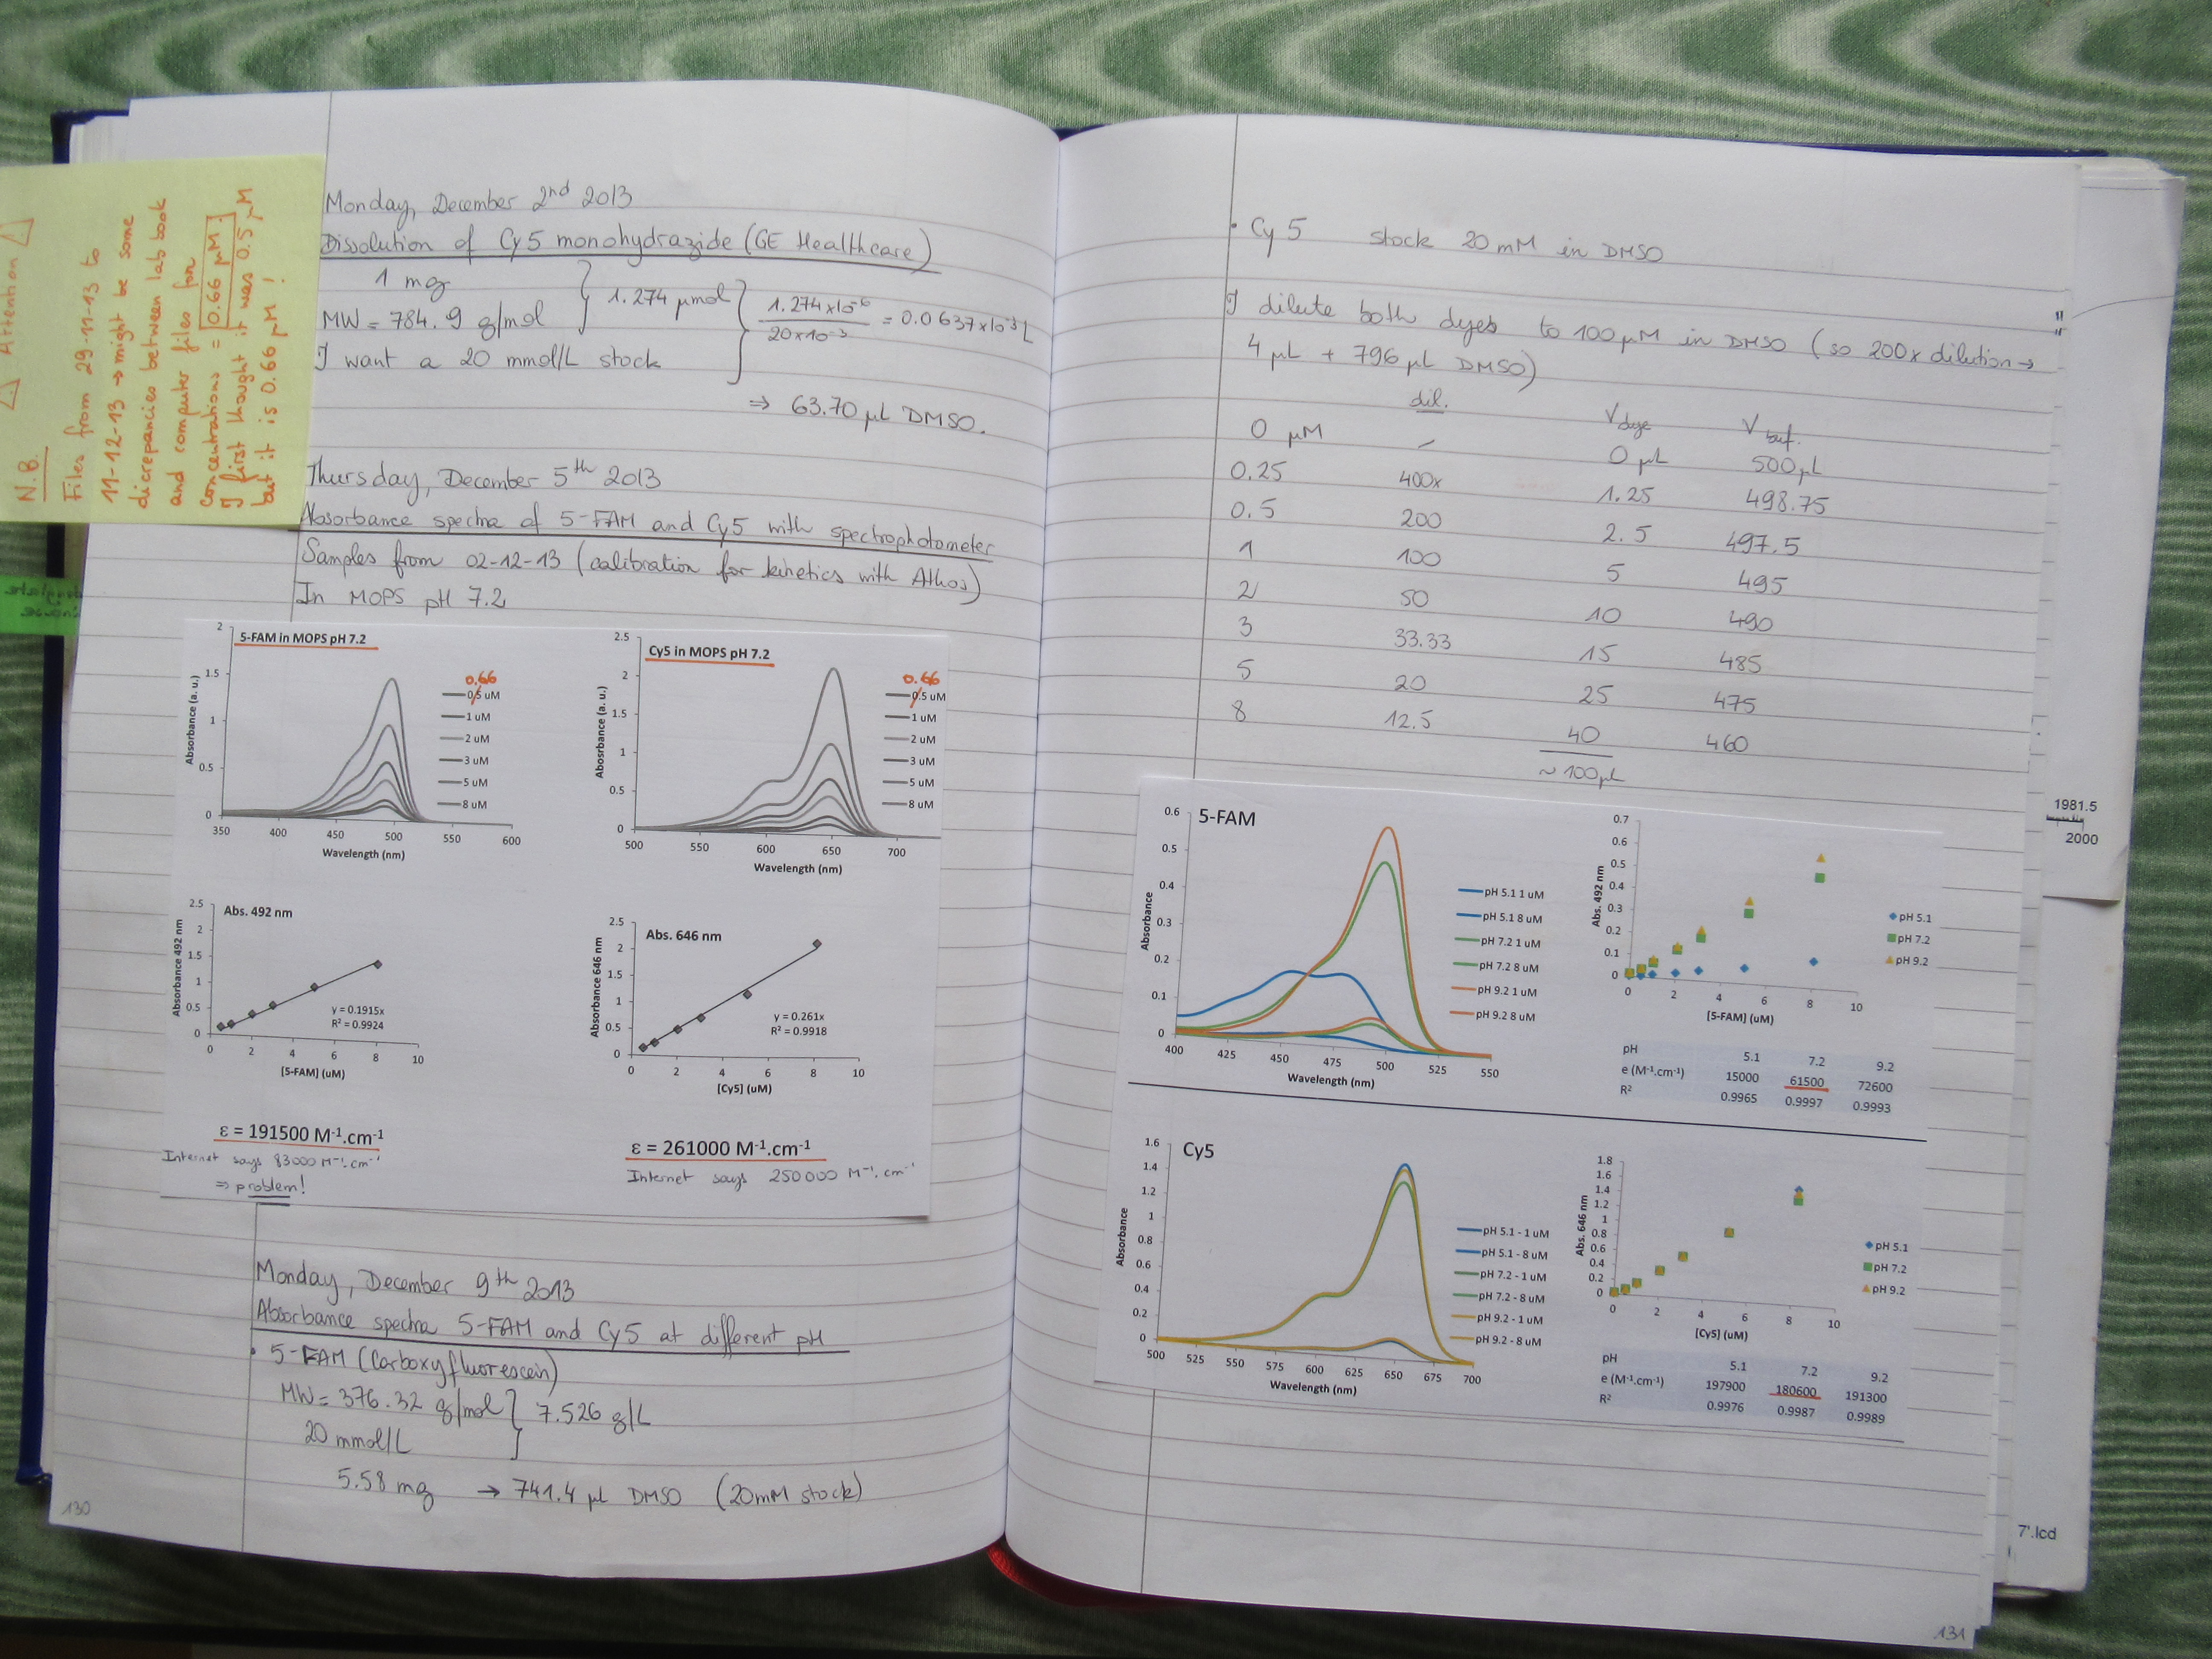 ⚠ Attention ⚠
N.B.
Files from 29-11-13 to
11-12-13 → might be some
discrepancies between lab book
and computer files for
concentrations = 0.66 µM.
I first thought it was 0.5 µM
but it is 0.66 µM !
Monday, December 2nd 2013
Dissolution of Cy5 monohydrazide (GE Healthcare)
1 mg
MW = 784.9 g/mol } 1.274 µmol } 1.274x10-6 / 20x10-3 = 0.0637x10-3 L
I want a 20 mmol/L stock
⇒ 63.70 µL DMSO.
Thursday, December 5th 2013
Absorbance spectra of 5-FAM and Cy5 with spectrophotometer
Samples from 02-12-13 (calibration for kinetics with Athos)
In MOPS pH 7.2
5-FAM in MOPS pH 7.2
Absorbance (a. u.)
2
1.5
1
0.5
0
350 400 450 500 550 600
Wavelength (nm)
0.66
0.5 uM
1 uM
2 uM
3 uM
5 uM
8 uM
Cy5 in MOPS pH 7.2
Abosrbance (a. u.)
2.5
2
1.5
1
0.5
0
500 550 600 650 700
Wavelength (nm)
0.66
0.5 uM
1 uM
2 uM
3 uM
5 uM
8 uM
Abs. 492 nm
Absorbance 492 nm
2.5
2
1.5
1
0.5
0
y = 0.1915x
R² = 0.9924
0 2 4 6 8 10
[5-FAM] (uM)
Abs. 646 nm
Absorbance 646 nm
2.5
2
1.5
1
0.5
0
y = 0.261x
R² = 0.9918
0 2 4 6 8 10
[Cy5] (uM)
ε = 191500 M-1.cm-1
Internet says 83000 M-1.cm-1
⇒ problem!
ε = 261000 M-1.cm-1
Internet says 250000 M-1.cm-1
Monday, December 9th 2013
Absorbance spectra 5-FAM and Cy5 at different pH
• 5-FAM (Carboxyfluorescein)
MW = 376.32 g/mol } 7.526 g/L
20 mmol/L
5.58 mg → 741.4 µl DMSO (20mM stock)
130
• Cy5 stock 20 mM in DMSO
I dilute both dyes to 100 µM in DMSO (so 200x dilution →
4 µL + 796 µL DMSO)
dil. Vdye Vbuf.
0 µM – 0 µL 500 µL
0.25 400x 1.25 498.75
0.5 200 2.5 497.5
1 100 5 495
2 50 10 490
3 33.33 15 485
5 20 25 475
8 12.5 40 460
~ 100 µL
5-FAM
Absorbance
0.6
0.5
0.4
0.3
0.2
0.1
0
400 425 450 475 500 525 550
Wavelength (nm)
pH 5.1 1 uM
pH 5.1 8 uM
pH 7.2 1 uM
pH 7.2 8 uM
pH 9.2 1 uM
pH 9.2 8 uM
Abs. 492 nm
0.7
0.6
0.5
0.4
0.3
0.2
0.1
0
0 2 4 6 8 10
[5-FAM] (uM)
pH 5.1
pH 7.2
pH 9.2
pH 5.1 7.2 9.2
e (M-1.cm-1) 15000 61500 72600
R² 0.9965 0.9997 0.9993
Cy5
Absorbance
1.6
1.4
1.2
1
0.8
0.6
0.4
0.2
0
500 525 550 575 600 625 650 675 700
Wavelength (nm)
pH 5.1 - 1 uM
pH 5.1 - 8 uM
pH 7.2 - 1 uM
pH 7.2 - 8 uM
pH 9.2 - 1 uM
pH 9.2 - 8 uM
Abs. 646 nm
1.8
1.6
1.4
1.2
1
0.8
0.6
0.4
0.2
0
0 2 4 6 8 10
[Cy5] (uM)
pH 5.1
pH 7.2
pH 9.2
pH 5.1 7.2 9.2
e (M-1.cm-1) 197900 180600 191300
R² 0.9976 0.9987 0.9989
131
1981.5
2000
7'.lcd